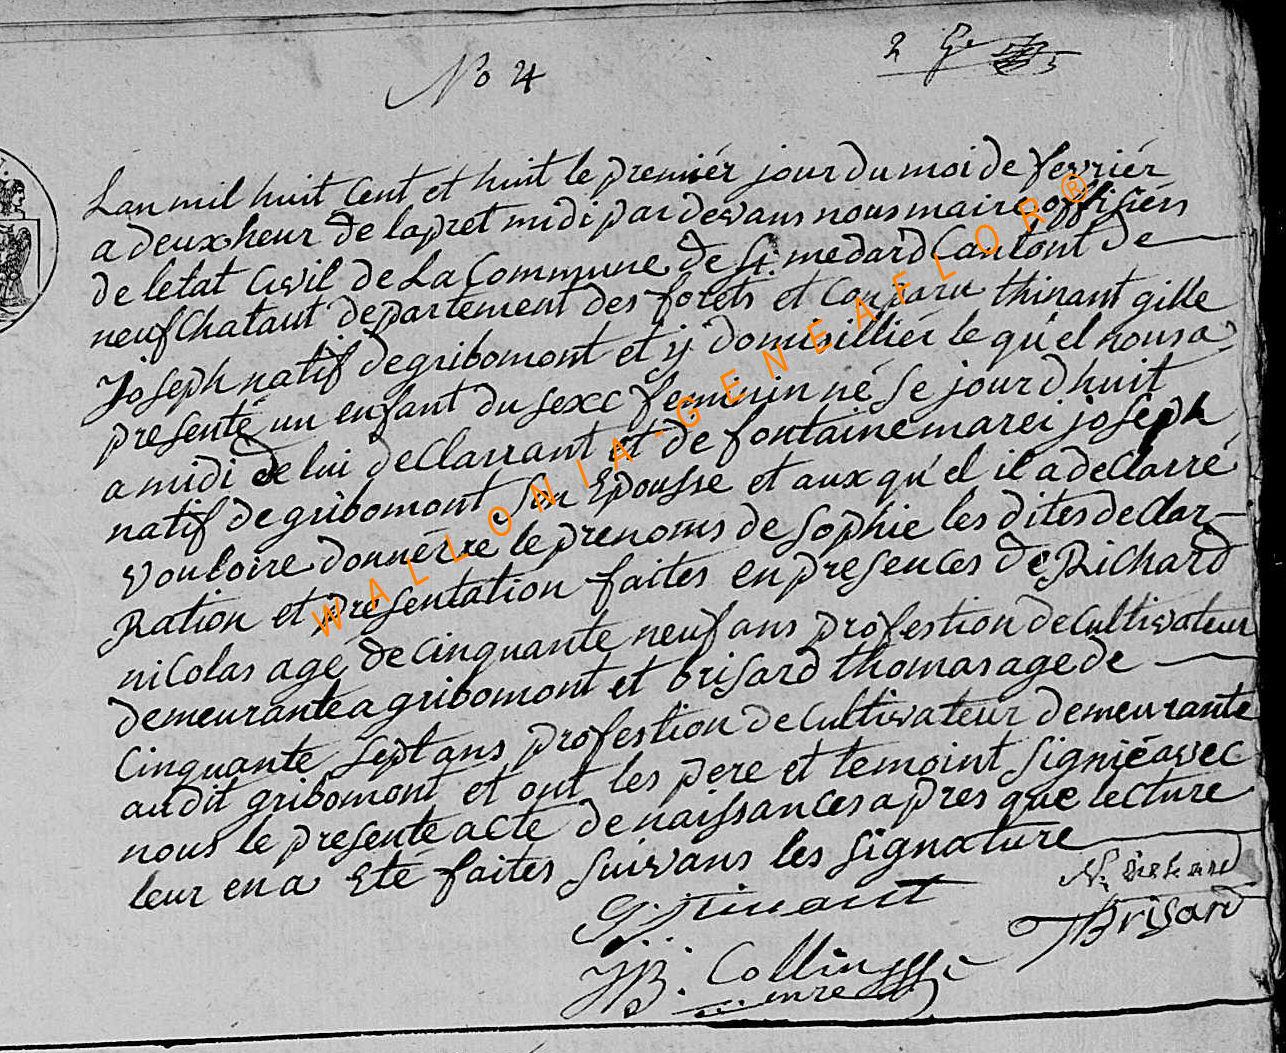 No 4
2 Ge
Lan mil huit Cent et huit le premiér jour du moi de fevriér
a deux heur de lapret midi par devans nous maire offisiér
de letat Civil de La Commune de St medard Cantont de
neufChataut departement des forets et Conparu thinant gille
Joseph natif de gribomont et y domisilliér le qu'el nous a
presenté un enfant du sexe feminin né se jour dhuit
a midi de lui deClarrant et de fontaine marei joseph
natif de gribomont son Epousse et aux qu'el il a deClarré
vouloire donnérre le prenoms de Sophie les dites deClar-
Ration et presentation faites en presences de Richard
niColas age de Cinquante neuf ans profestion de Cultivateur
demeurante a gribomont et brisard thomas age de
Cinquante sept ans profestion de Cultivateur demeurante
audit gribomont et ont les pere et temoint signié avec
nous le presente acte de naissances apres que lecture
leur en a Eté faites suivans les signature
N. richard
G: j tinant
TBrisard
JB. Collin
mre
WALLONIA-GENEAFLOR®